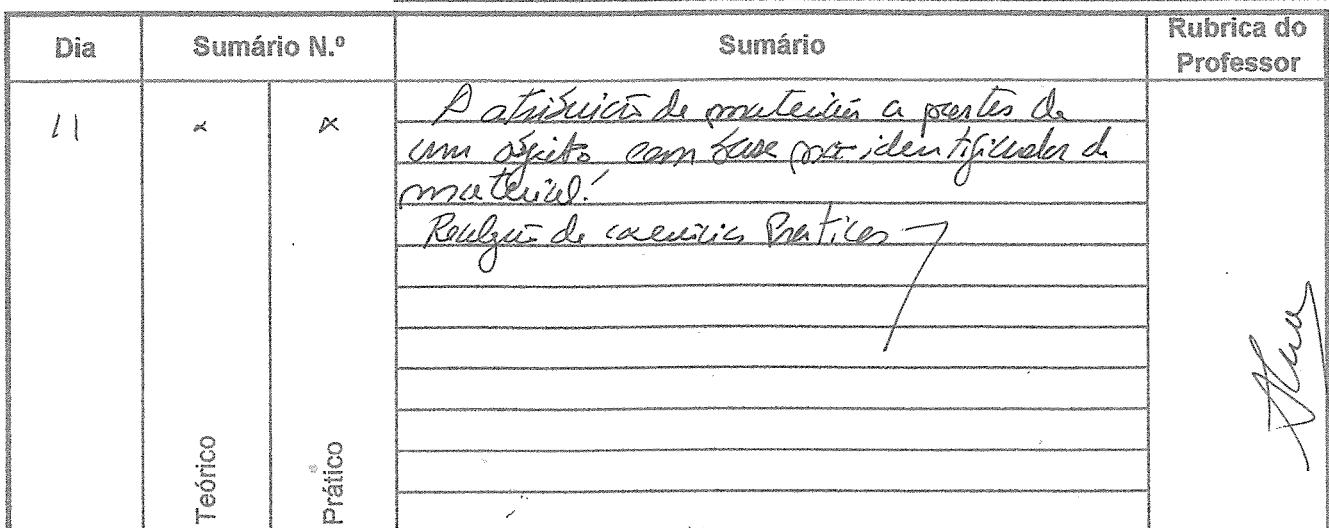 Dia
Sumário N.º
Sumário
Rubrica do
Professor
11
x
x
A atribuição de materiais a partes de
um objeto com base no identificador de
material.
Realização de exercícios Praticos
Teórico
Prático